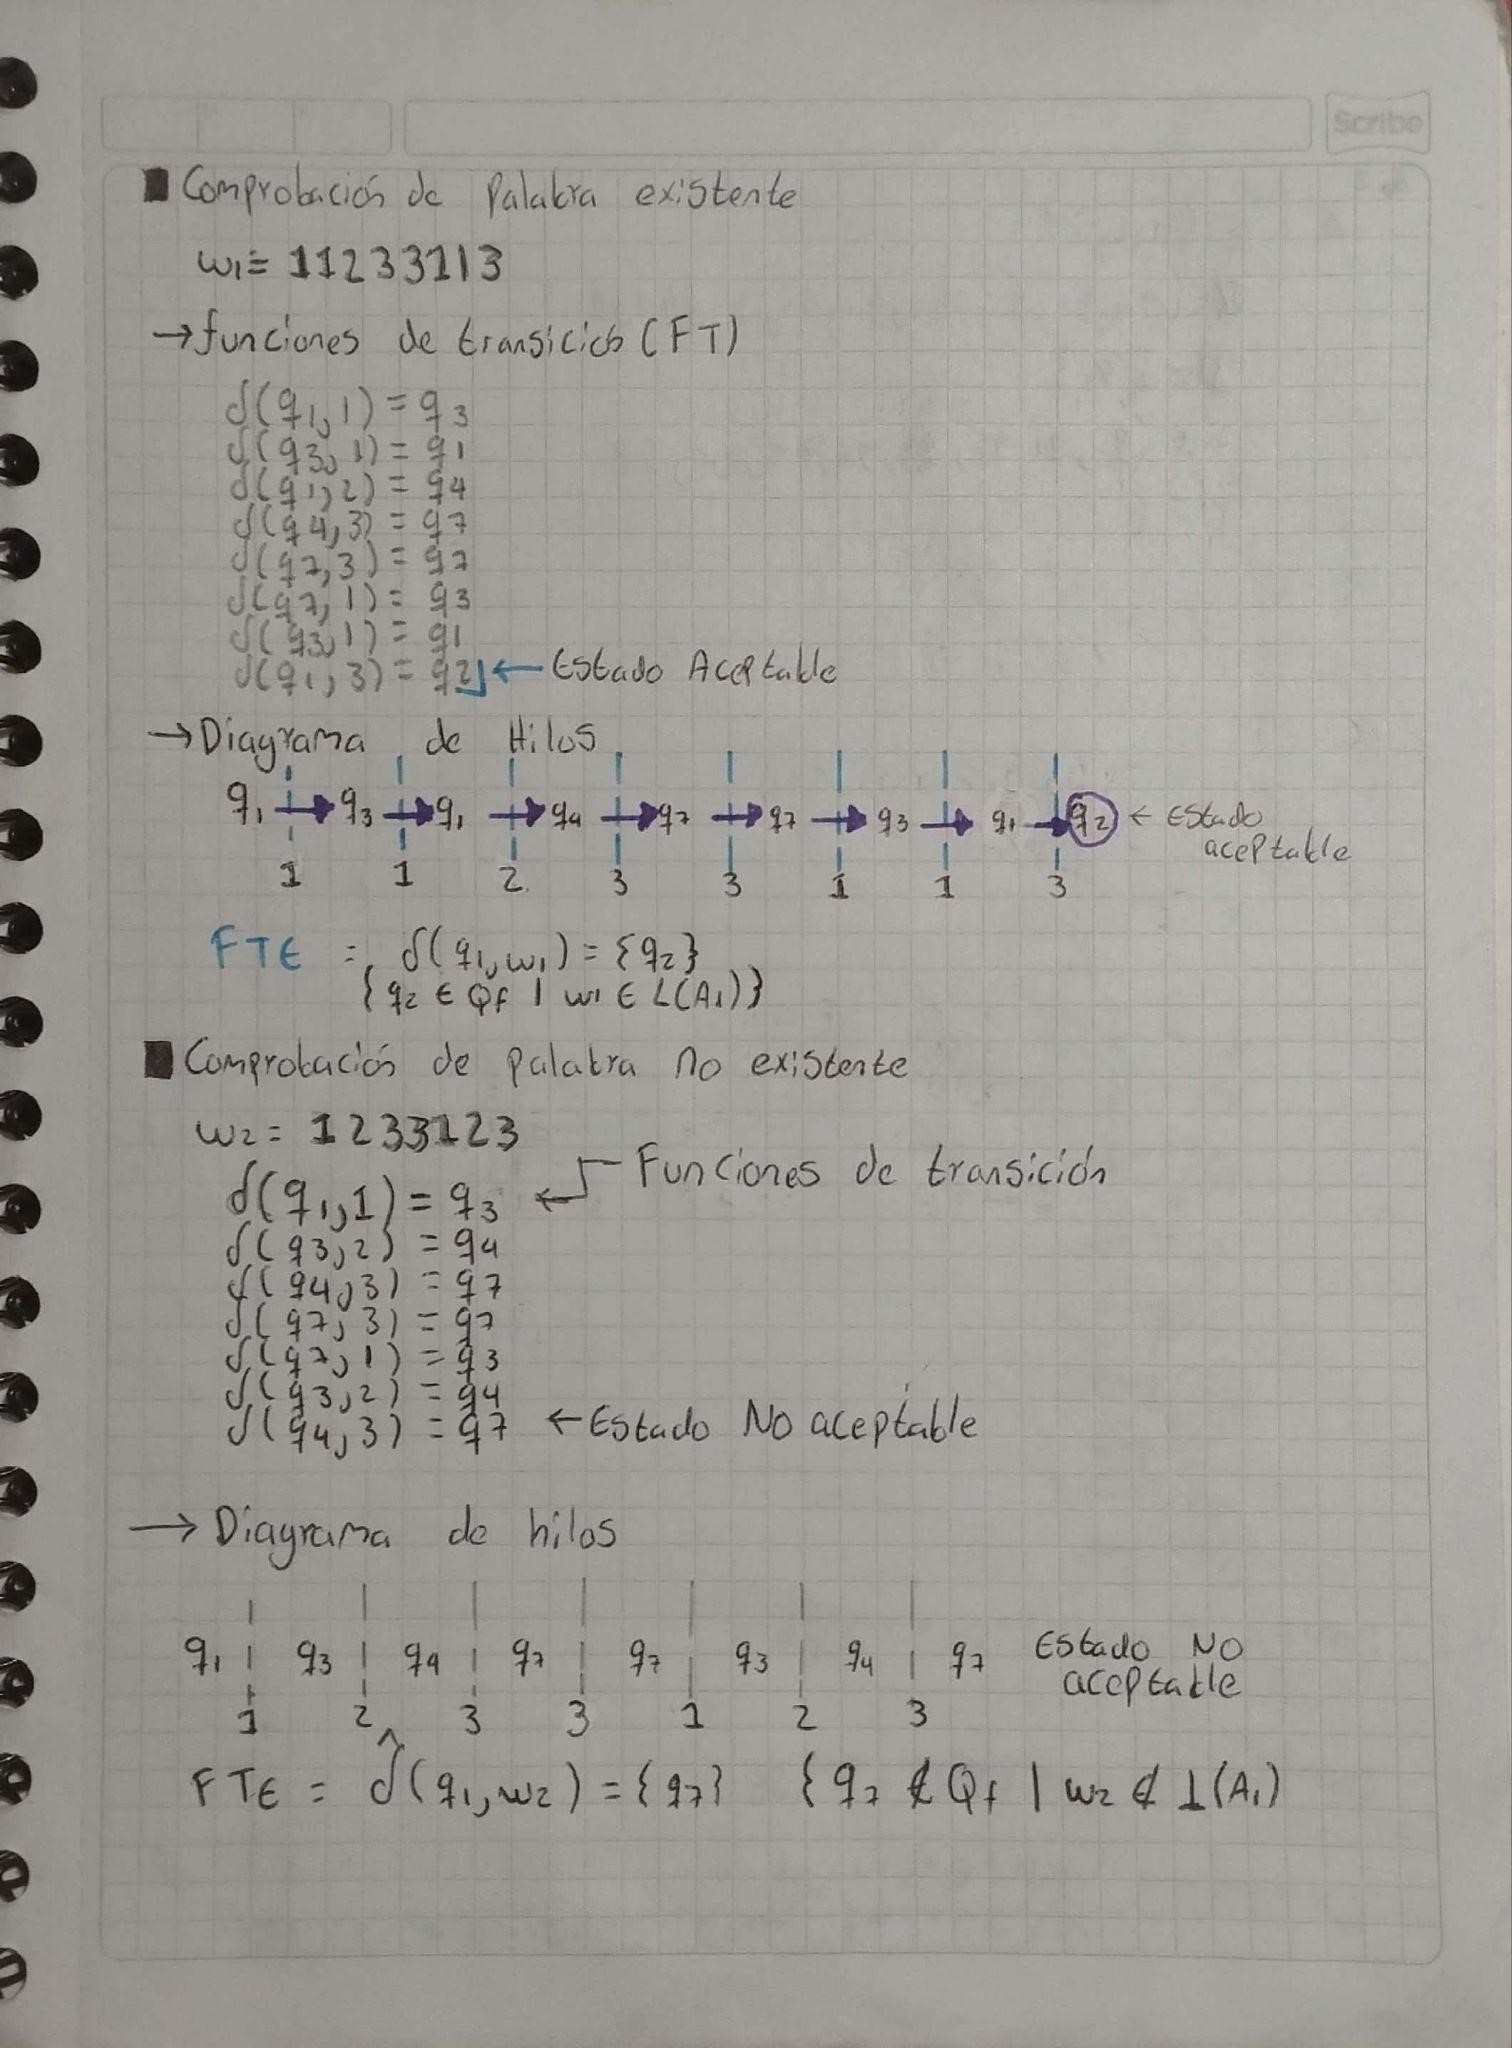 Scribe
Comprobación de Palabra existente
w1 = 11233113
→ funciones de transición (FT)
δ(q1,1) = q3
δ(q3,1) = q1
δ(q1,2) = q4
δ(q4,3) = q7
δ(q7,3) = q7
δ(q7,1) = q3
δ(q3,1) = q1
δ(q1,3) = q2 ← Estado Aceptable
→ Diagrama de Hilos
q1 → q3 → q1 → q4 → q7 → q7 → q3 → q1 → q2 ← Estado aceptable
1 1 2 3 3 1 1 3
FTE = δ(q1,w1) = {q2}
{q2 ∈ Qf | w1 ∈ L(A1)}
Comprobación de palabra no existente
w2 = 1233123
Funciones de transición
δ(q1,1) = q3 ←
δ(q3,2) = q4
δ(q4,3) = q7
δ(q7,3) = q7
δ(q7,1) = q3
δ(q3,2) = q4
δ(q4,3) = q7 ← Estado No aceptable
→ Diagrama de hilos
q1 | q3 | q4 | q7 | q7 | q3 | q4 | q7 Estado NO aceptable
1 2 3 3 1 2 3
FTE = δ̂(q1,w2) = {q7} {q7 ∉ Qf | w2 ∉ L(A1)